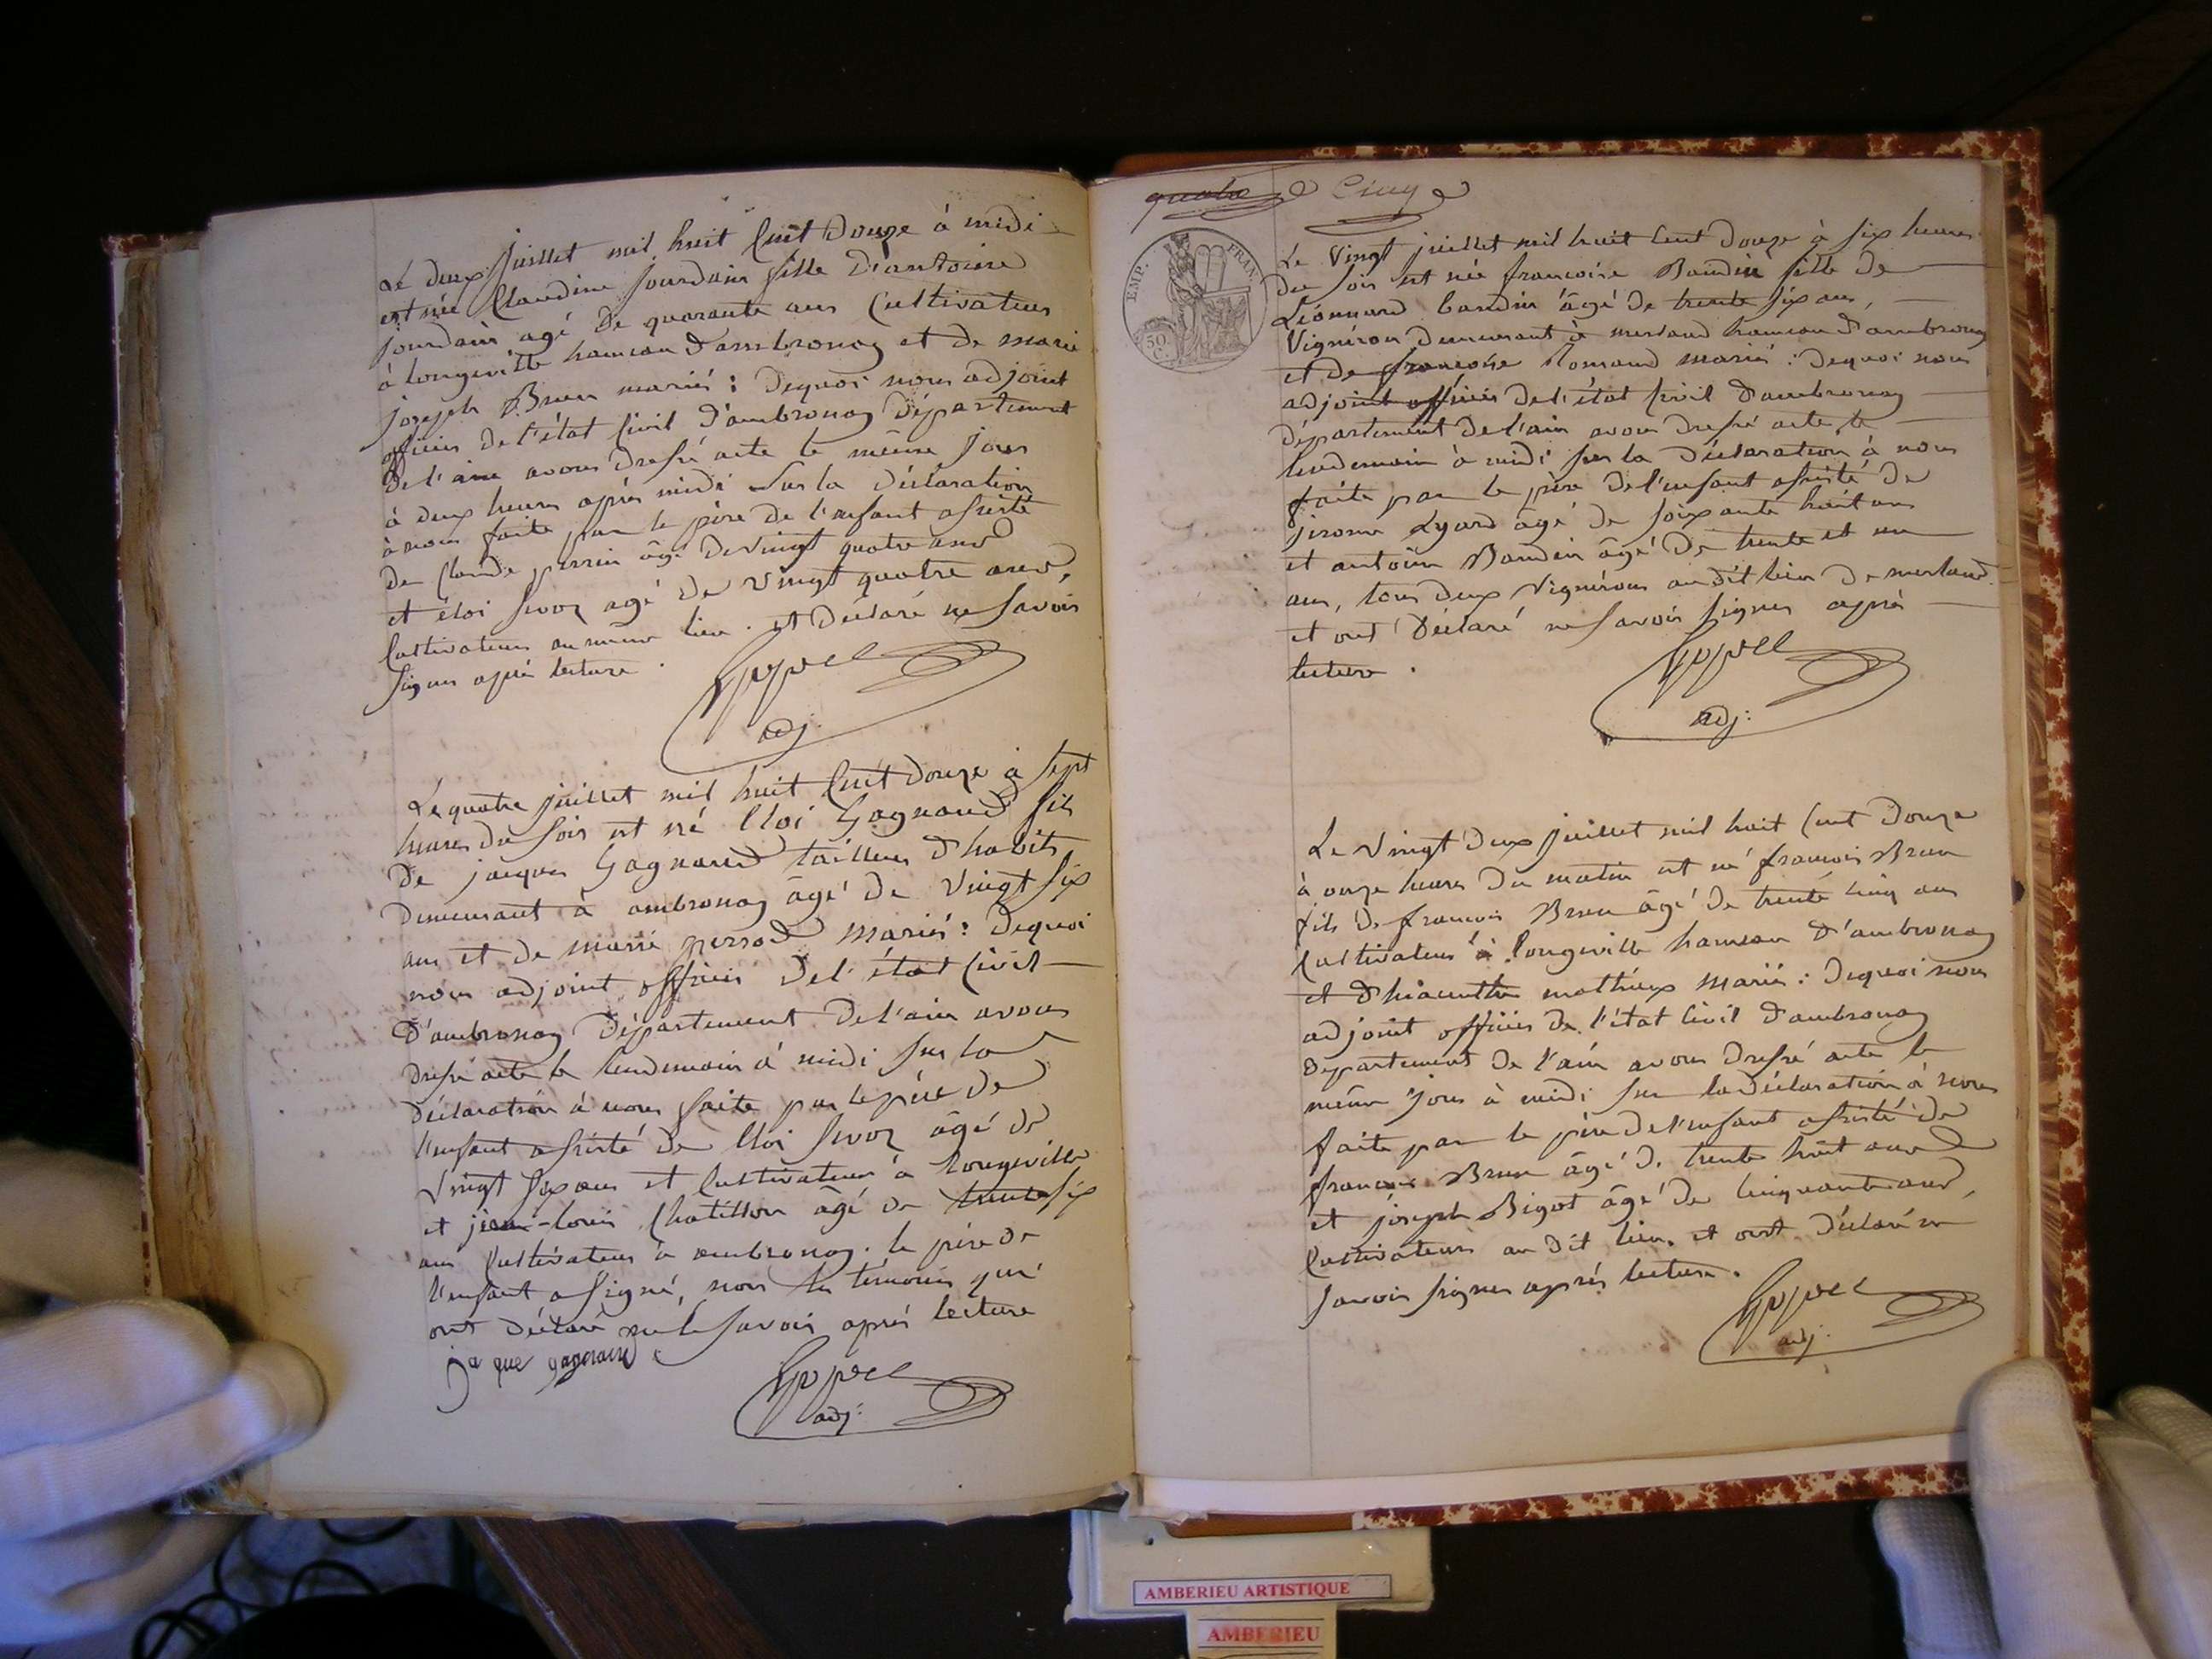 Le deux Juillet mil huit Cent Douze à midi
est née Claudine Jourdain fille D'antoine
jourdain agé De quarante ans Cultivateur
à longeville hameau d'ambronay et de marie
joseph Brun mariés : Dequoi nous adjoint
officier De l'état Civil D'ambronay Département
De l'ain avons Dressé acte le même Jour
à deux heures après midi Sur la Déclaration
à nous faite par le père de l'enfant assisté
De Claude perrin âgé De vingt quatre ans
et éloi agé de vingt quatre ans,
Cultivateurs au même lieu . et Déclaré ne Savoir
Signer après lecture .
adj.
Le quatre juillet mil huit Cent Douze à Sept
heures du Soir est né Eloi Gagnaud fils
De jacques Gagnaud tailleur D'habits
Demeurant à ambronay âgé De vingt Six
ans et de marie perrod mariés : Dequoi
nous adjoint officier Del'état Civil
D'ambronay Département Del'ain avons
Dressé acte le lendemain à midi Sur la
Déclaration à nous faite par le père De
l'enfant assisté De Eloi âgé De
Vingt Six ans et Cultivateur à Longeville
et jean-louis Chatillon âgé De trente Six
ans Cultivateur à ambronay. le père De
l'enfant a Signé, non les témoins qui
ont Déclaré ne le Savoir après lecture
jaque gagnaud
adj.
quatre Cinq
EMP. FRAN.
50 C.
Le Vingt juillet mil huit Cent Douze à Six heures
du Soir est née francoise Baudin fille De
Léonnard baudin âgé De trente Six ans,
Vigneron Demeurant à merland hameau d'ambronay
et De francoise Romand mariés : Dequoi nous
adjoint officier Del'état Civil D'ambronay
département Del'ain avons Dressé acte le
lendemain à midi Sur la Déclaration à nous
faite par le père Del'enfant assisté De
jérome Lyard âgé De Soixante huit ans
et antoine Baudin âgé De trente et un
ans, tous Deux Vignerons au dit lieu De merland
et ont Déclaré ne Savoir Signer après
lecture .
adj.
Le Vingt Deux Juillet mil huit Cent Douze
à onze heures Du matin est né francois Brun
fils De francois Brun âgé De trente Cinq ans
Cultivateur à longeville hameau D'ambronay
et D'hiacinthe mathieux mariés : Dequoi nous
adjoint officier De l'état Civil D'ambronay
Département De l'ain avons Dressé acte le
même Jour à midi Sur la Déclaration à nous
faite par le père De l'enfant assisté De
francois Brun âgé De trente huit ans
et joseph Bigot âgé De Cinquante ans,
Cultivateurs au Dit lieu. et ont Déclaré ne
Savoir Signer après lecture.
adj.
AMBERIEU ARTISTIQUE
AMBERIEU